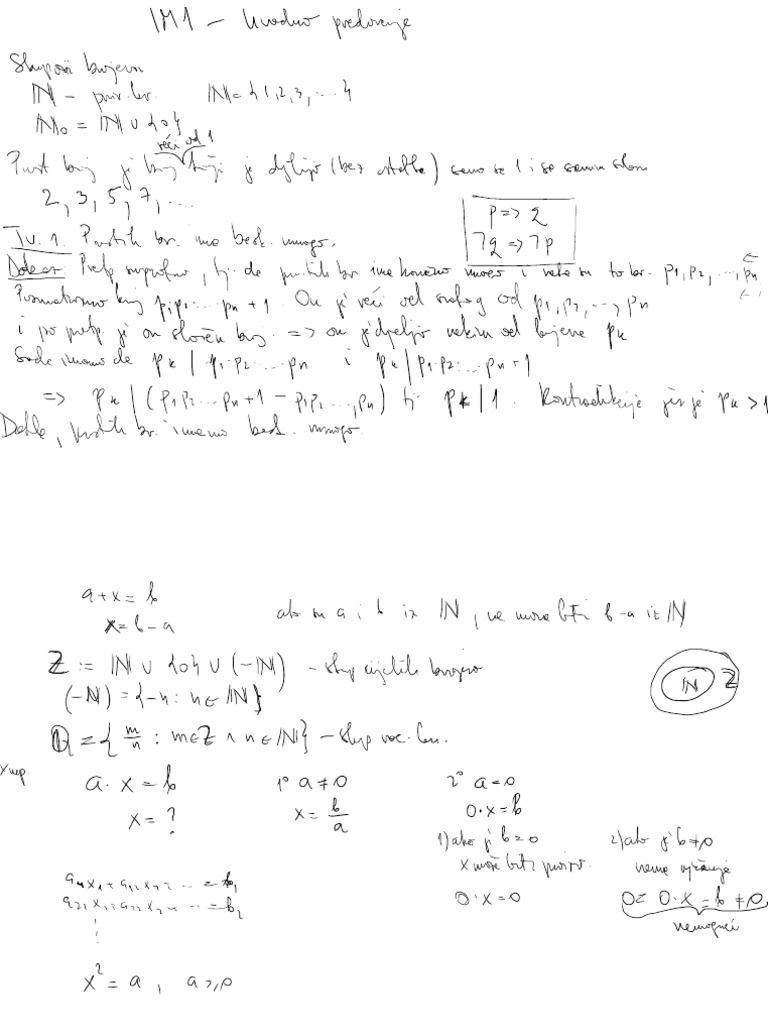 IM1 – Uvodno predavanje
Skupovi brojeva
ℕ – prir. br.   ℕ = {1,2,3,...}
ℕ₀ = ℕ ∪ {0}
veći od 1
Prost broj je broj koji je djeljiv (bez ostatka) samo sa 1 i sa samim sobom
2, 3, 5, 7, ...
p => q
Tv. 1. Prostih br. ima besk. mnogo.
¬q => ¬p
Dokaz: Pretp. suprotno, tj. da prostih br. ima konačno mnogo i neka su to br. p₁, p₂, ..., pₙ
Posmatramo broj p₁p₂...pₙ + 1. On je veći od svakog od p₁, p₂, ..., pₙ
i po pretp. je on složen broj. => on je djeljiv nekim od brojeva pₖ
Sada imamo da pₖ | p₁·p₂...pₙ i pₖ | p₁·p₂...pₙ+1
=> pₖ | (p₁p₂...pₙ+1 – p₁p₂...pₙ) tj. pₖ | 1. Kontradikcija jer je pₖ > 1
Dakle, prostih br. imamo besk. mnogo.
a + x = b
x = b – a
ako su a i b iz ℕ, ne mora biti b–a iz ℕ
ℤ := ℕ ∪ {0} ∪ (–ℕ) – skup cijelih brojeva
ℕ ℤ
(–ℕ) = {–n : n ∈ ℕ}
ℚ = { m/n : m∈ℤ ∧ n∈ℕ } – skup rac. br.
a · x = b   1° a ≠ 0   2° a = 0
x = ?   x = b/a   0·x = b
1) ako je b = 0   2) ako je b ≠ 0
x može biti proizv.   nema rješenja
0·x = 0   0 = 0·x = b ≠ 0
nemoguće
a₁₁x₁ + a₁₂x₂ + ... = b₁
a₂₁x₁ + a₂₂x₂ + ... = b₂
⋮
x² = a, a ≥ 0